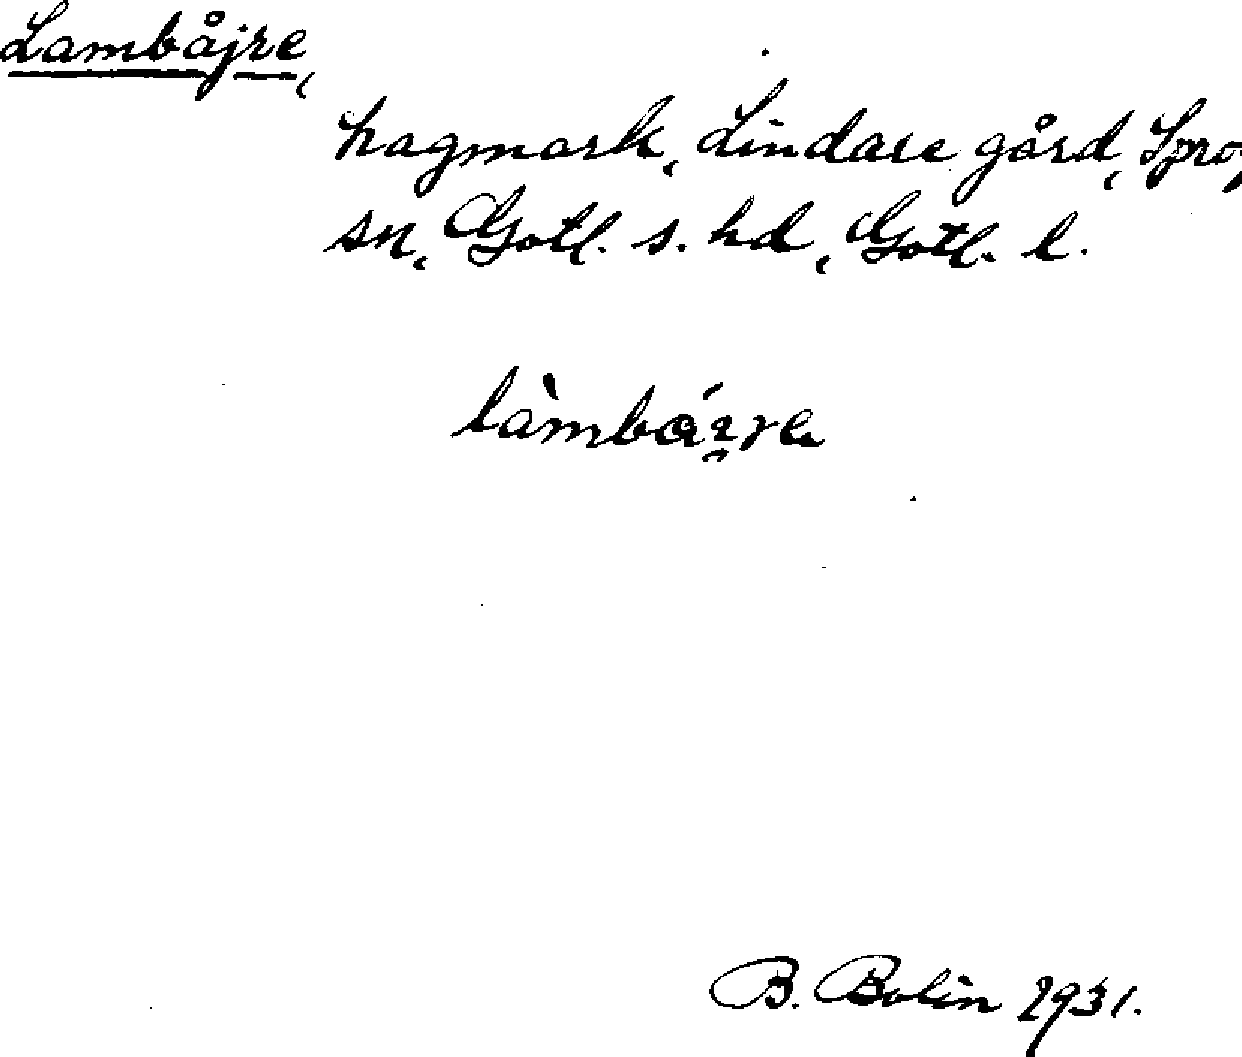 Lambåjre,
hagmark, Lindare gård, Spro-
sn, Gotl. s. hd, Gotl. l.
B. Bolin 1931.